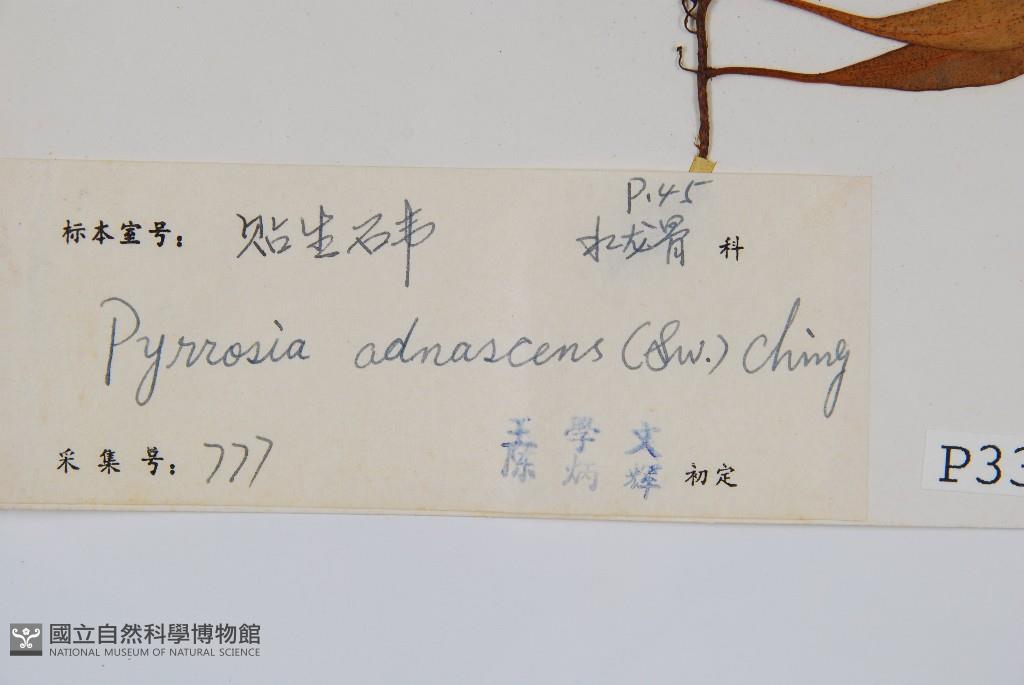 P.45
标本室号： 贴生石韦 水龙骨 科
Pyrrosia adnascens (Sw.) Ching
王學文
采集号： 777 陈炳辉 初定
P33
國立自然科學博物館
NATIONAL MUSEUM OF NATURAL SCIENCE